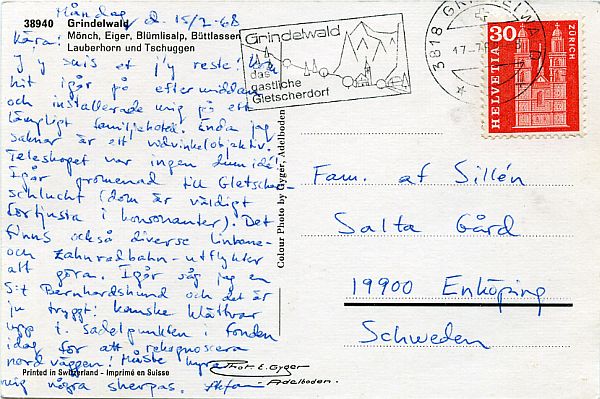 Måndag d. 15/7-68
38940 Grindelwald
Mönch, Eiger, Blümlisalp, Büttlassen
Lauberhorn und Tschuggen
Kära!
J'y suis et j'y reste! Kom
hit igår på eftermiddan
och installerade mig på ett
lämpligt familjehotel. Enda jag
saknar är ett vidvinkelobjektiv.
Teleskopet var ingen dum idé!
Igår promenad till Gletscher-
schlucht (dom är väldigt
förtjusta i konsonanter). Det
finns också diverse linbane-
och Zahnradbahn-utflykter
att göra. Igår såg jag en
S:t Bernhardshund och det är
ju tryggt: kanske klättrar
upp i sadelpunkten i fonden
idag för att rekognoscera
nordväggen! Måste hyra
mig några sherpas.
Printed in Switzerland - Imprimé en Suisse
Colour Photo by Gyger, Adelboden
Phot. E. Gyger
Adelboden.
Grindelwald
das
gastliche
Gletscherdorf
3818 GRINDELWALD
HELVETIA
30
ZÜRICH
Fam. af Sillén
Salta Gård
19900 Enköping
Schweden